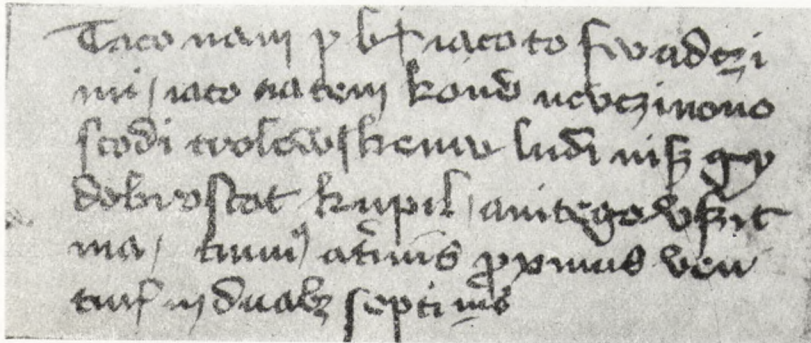 Taco nam p b† iaco to swadczi
mi / iaco na tem konv nevczinono
scodi crolewskemv ludi nisz gy
dobrostat kupil / ani tego vszit
ma / proximus ven
tur in duabz septimis